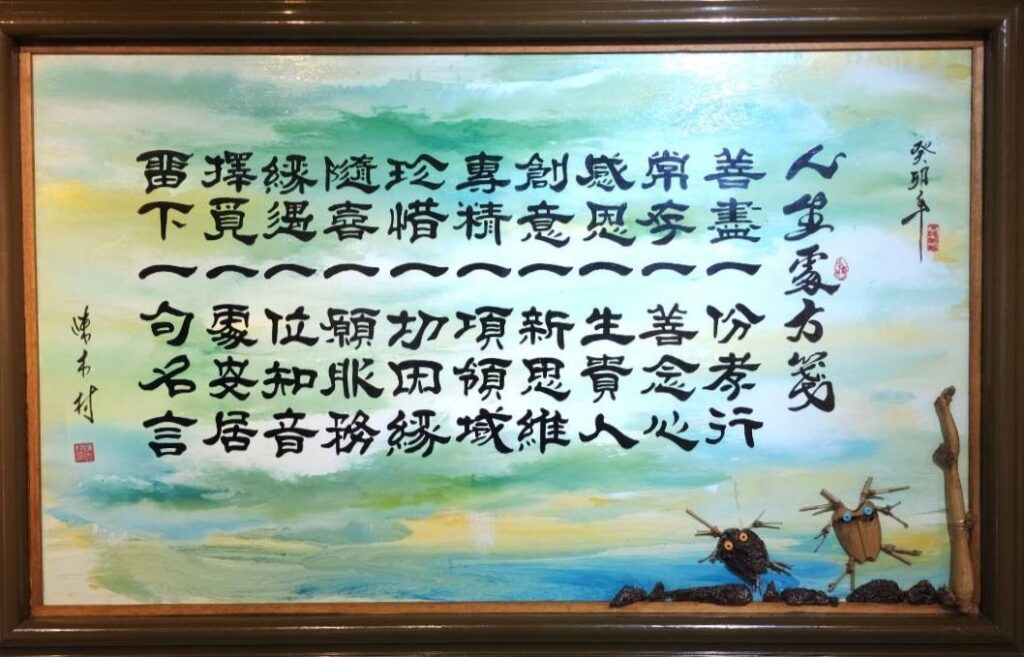 癸卯年
人生處方箋
善盡一份孝行
常存一善念心
感恩一生貴人
創意一新思維
專精一項領域
珍惜一切因緣
隨喜一願服務
緣遇一位知音
擇覓一處安居
畱下一句名言
陳木村